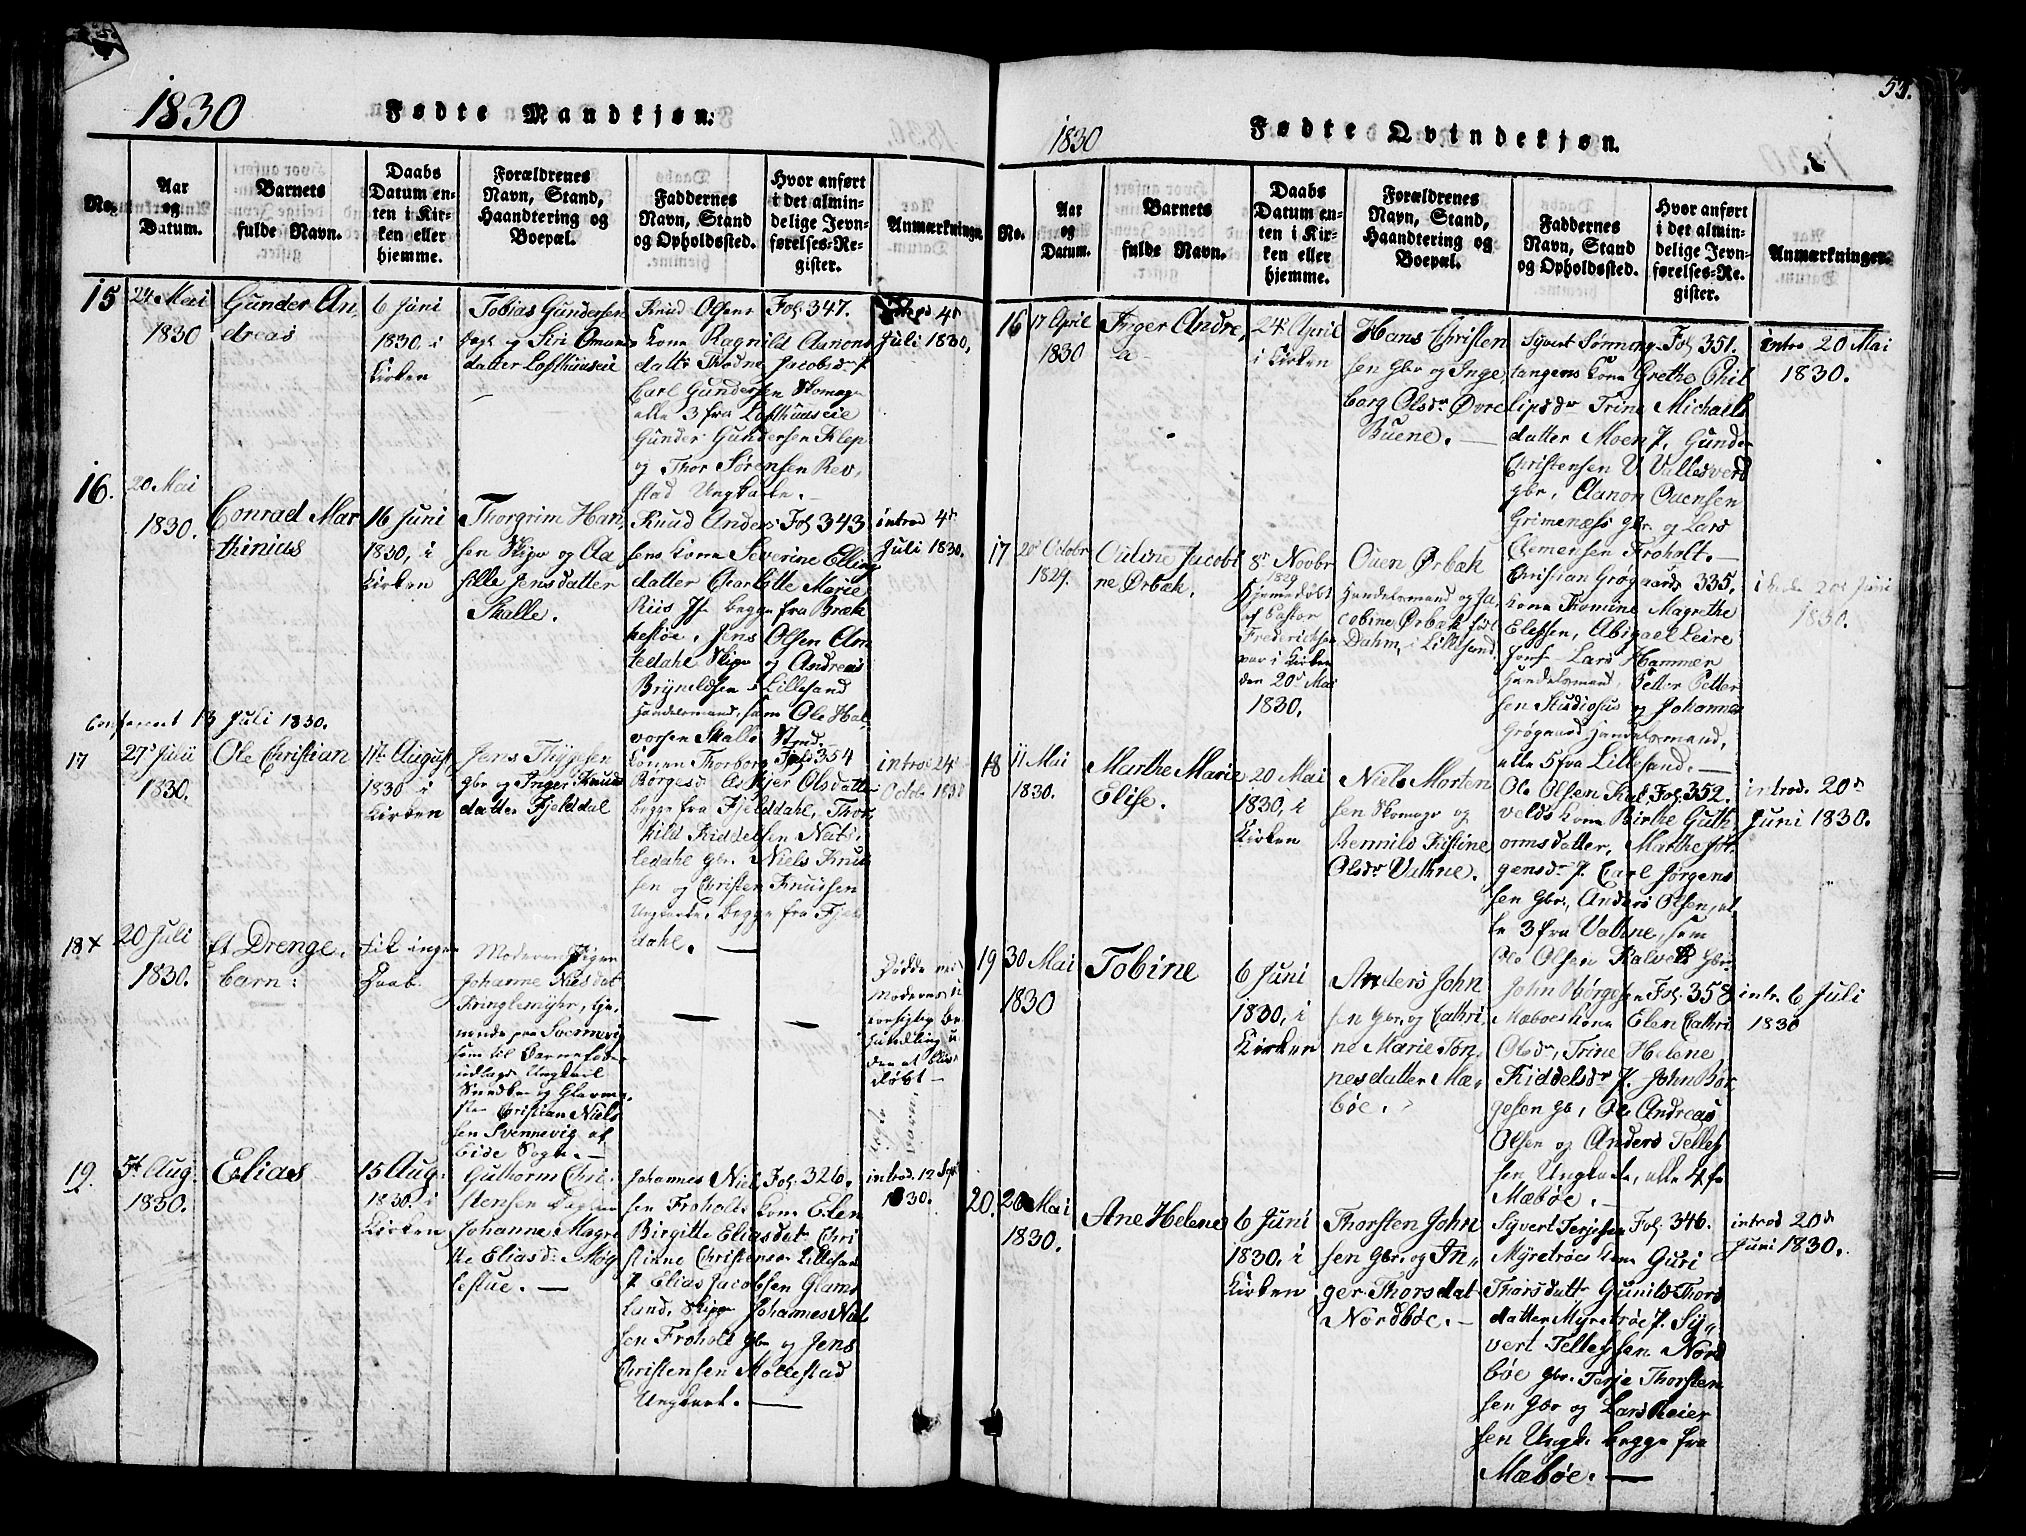 1830
Fødte Mandkjøn.
No.
Aar
og
Datum.
Barnets
fulde Navn.
Daabs
Datum en-
ten i Kir-
ken eller
hjemme.
Forældrenes
Navn, Stand,
Haandtering og
Boepæl.
Faddernes
Navn, Stand
og Opholdssted.
Hvor anført
i det almin-
delige Jevn-
førelses-Re-
gister.
Anmærkninger.
15
24 Mai
1830
Gunder An
dreas
6 Juni
1830. i
Kirken
Tobias Gundersen
og Siri Omunds
datter Lofthuuseie
Knud Olsens
Kone Ragnild Aanons
datter Thodne Jacobsdr P.
Carl Gundersen Skomager
alle 3 fra Lofthuuseie
Gunder Gundersen Klep
og Thor Sørensen Rev,
stad Ungkarle.
Fol 347.
4de
Juli 1830,
16.
20 Mai
1830.
Conrad Mar
thinius
16 Juni
1830, i
Kirken
Thorgrim Han
sen Skipr og Aa
sille Jensdatter
Skalle.
Knud Anders
sens Kone Severine Elling
datter Charlotte Marie
Riis Jf. begge fra Bræk
kestøe, Jens Olsen Am
tedahl Skipr og Andreas
Brynildsen i Lillesand
Handelsmand, samt Ole Hal
vorsen Skalle
Fol 343
introd 4de
Juli 1830.
Confereret 13 Juli 1830.
17
27de Juli
1830.
Ole Christian
1ste August
1830 i
Kirken
Jens Thygesen
Gbr og Inger Knuds
datter Fjeldal
Konen Thorborg
Børgesdr Askjer Olsdatter
begge fra Fjelddahl, Thor
kild Kiddelsen Natt
ledahl gbr. Niels Knud
sen og Christen Knudsen
Ungkarle. begge fra Fjel
dahl.
Fol 354
introd 24de
Octobr 1830
18 +
20 Juli
1830.
Et Drenge.
barn.
Fik ingen
Daab.
Moderen Pigen
Johanne Nielsdat
Kringlemyhr, tje
nende paa Svennevig
som til Barnefader
udlagde Ungkarl
Snedker og Glarme
ster Christian Niels
sen Svennevig af
Eide Sogn.
Døde ved
Moderens u
forsigtig Be
handling u
den at blive
døbt
19.
5te Aug.
1830.
Elias
15 Aug.
1830. i
Kirken
Guttorm Chri
stensen
Johanne Magre
the Eliasdr Møg
lestue.
Johannes Niel
sen Froholts Kone Elen
Birgitte Eliasdatr Chri
stinne Christensen Lillesand
P. Elias Jacobsen Glams
land, Skipr Johannes Niel
sen Froholt Gbr og Jens
Christensen Møllestad
Ungkarl.
Fol. 326.
introd. 12 Sept
1830.
53.
1830
Fødte Qvindekjøn.
No.
Aar
og
Datum.
Barnets
fulde Navn.
Daabs
Datum en-
ten i Kir-
ken eller
hjemme.
Forældrenes
Navn, Stand,
Haandtering og
Boepæl.
Faddernes
Navn, Stand
og Opholdssted.
Hvor anført
i det almin-
delige Jevn-
førelses-Re-
gister.
Anmærkninger.
16
17 April
1830
Inger Andre,
a
24 April
i Kirken
Hans Christen
sen Gbr og Inge,
borg Olsdr Øvre
Buene.
Syvert Sørning,
tangens Kone Grethe Phil
lipsdr Trine Michaels
datter Moen P. Gunder
Christensen V Vallesverd
gbr, Aanon Ouensen
Grimenæss gbr og Lars
Clemensen Froholt.
Fol 351.
introd 20 Mai
1830.
17
20de Octobr
1829.
Oudine Jacobi
ne Ørbak.
8de Novbr
1829
Hjemmedøbt
af Pastor
Fredericksen
var i Kirken
den 20de Mai
1830.
Ouen Ørbak
Handelsmand og Ja,
cobine Ørbak født
Dahm, i Lillesand.
Christian Grøgaards
Kone Thomine Magrethe
Elefsen, Abigael Leire
Jomf. Lars Hammer
Handelsmand Petter Petter
sen Studiosus og Johannes
Grøgaard Handelsmand,
alle 5 fra Lillesand.
335.
20de Juni
1830.
18
11 Mai
1830.
Marthe Marie
Elise.
20 Mai
1830, i
Kirken
Niels Morten
sen Skomagr og
Rennild Kistine
Olsdr Vathne.
Ole Olsen Kal,
velds Kone Birthe Guth,
ormsdatter, Marthe Jør,
gensdr P. Carl Jørgens
sen Gbr, Anders Olsen, al
le 3 fra Vathne, sam
Ole Olsen Kalveld Gbr
Fol. 352.
introd. 20de
Juni 1830.
19
30 Mai
1830
Tobine
6 Juni
1830, i
Kirken
Anders John
sen Gbr, og Cathri
ne Marie Tøn,
nesdatter Mæ,
bøe.
John Børgesen
Mæboes Kone Elen Cathri
Olsdr, Trine Helene
Kiddelsdr P. John Bør
gesen Gb, Ole Andreas
Olsen og Anders Tellef
sen Ungkarle, alle 4 fra
Mæbøe.
Fol. 358
intr. 6 Juli
1830
20.
26 Mai
1830.
Ane Helene
6 Juni
1830, i
Kirken
Thorsten John
sen Gbr, og In,
ger Thorsdat
Nordbøe.
Syvert Terjesen
Myretrøes Kone Guri
Thorsdatr Gunild Thors
datter Myretrøe P. Sy,
vert Tellefsen Nord
bøe Gbr. Terje Thorsten
sen Gbr og Lars Reier
sen Ungk. begge fra
Mæbøe.
Fol. 346.
introd 20de
Juni 1830.